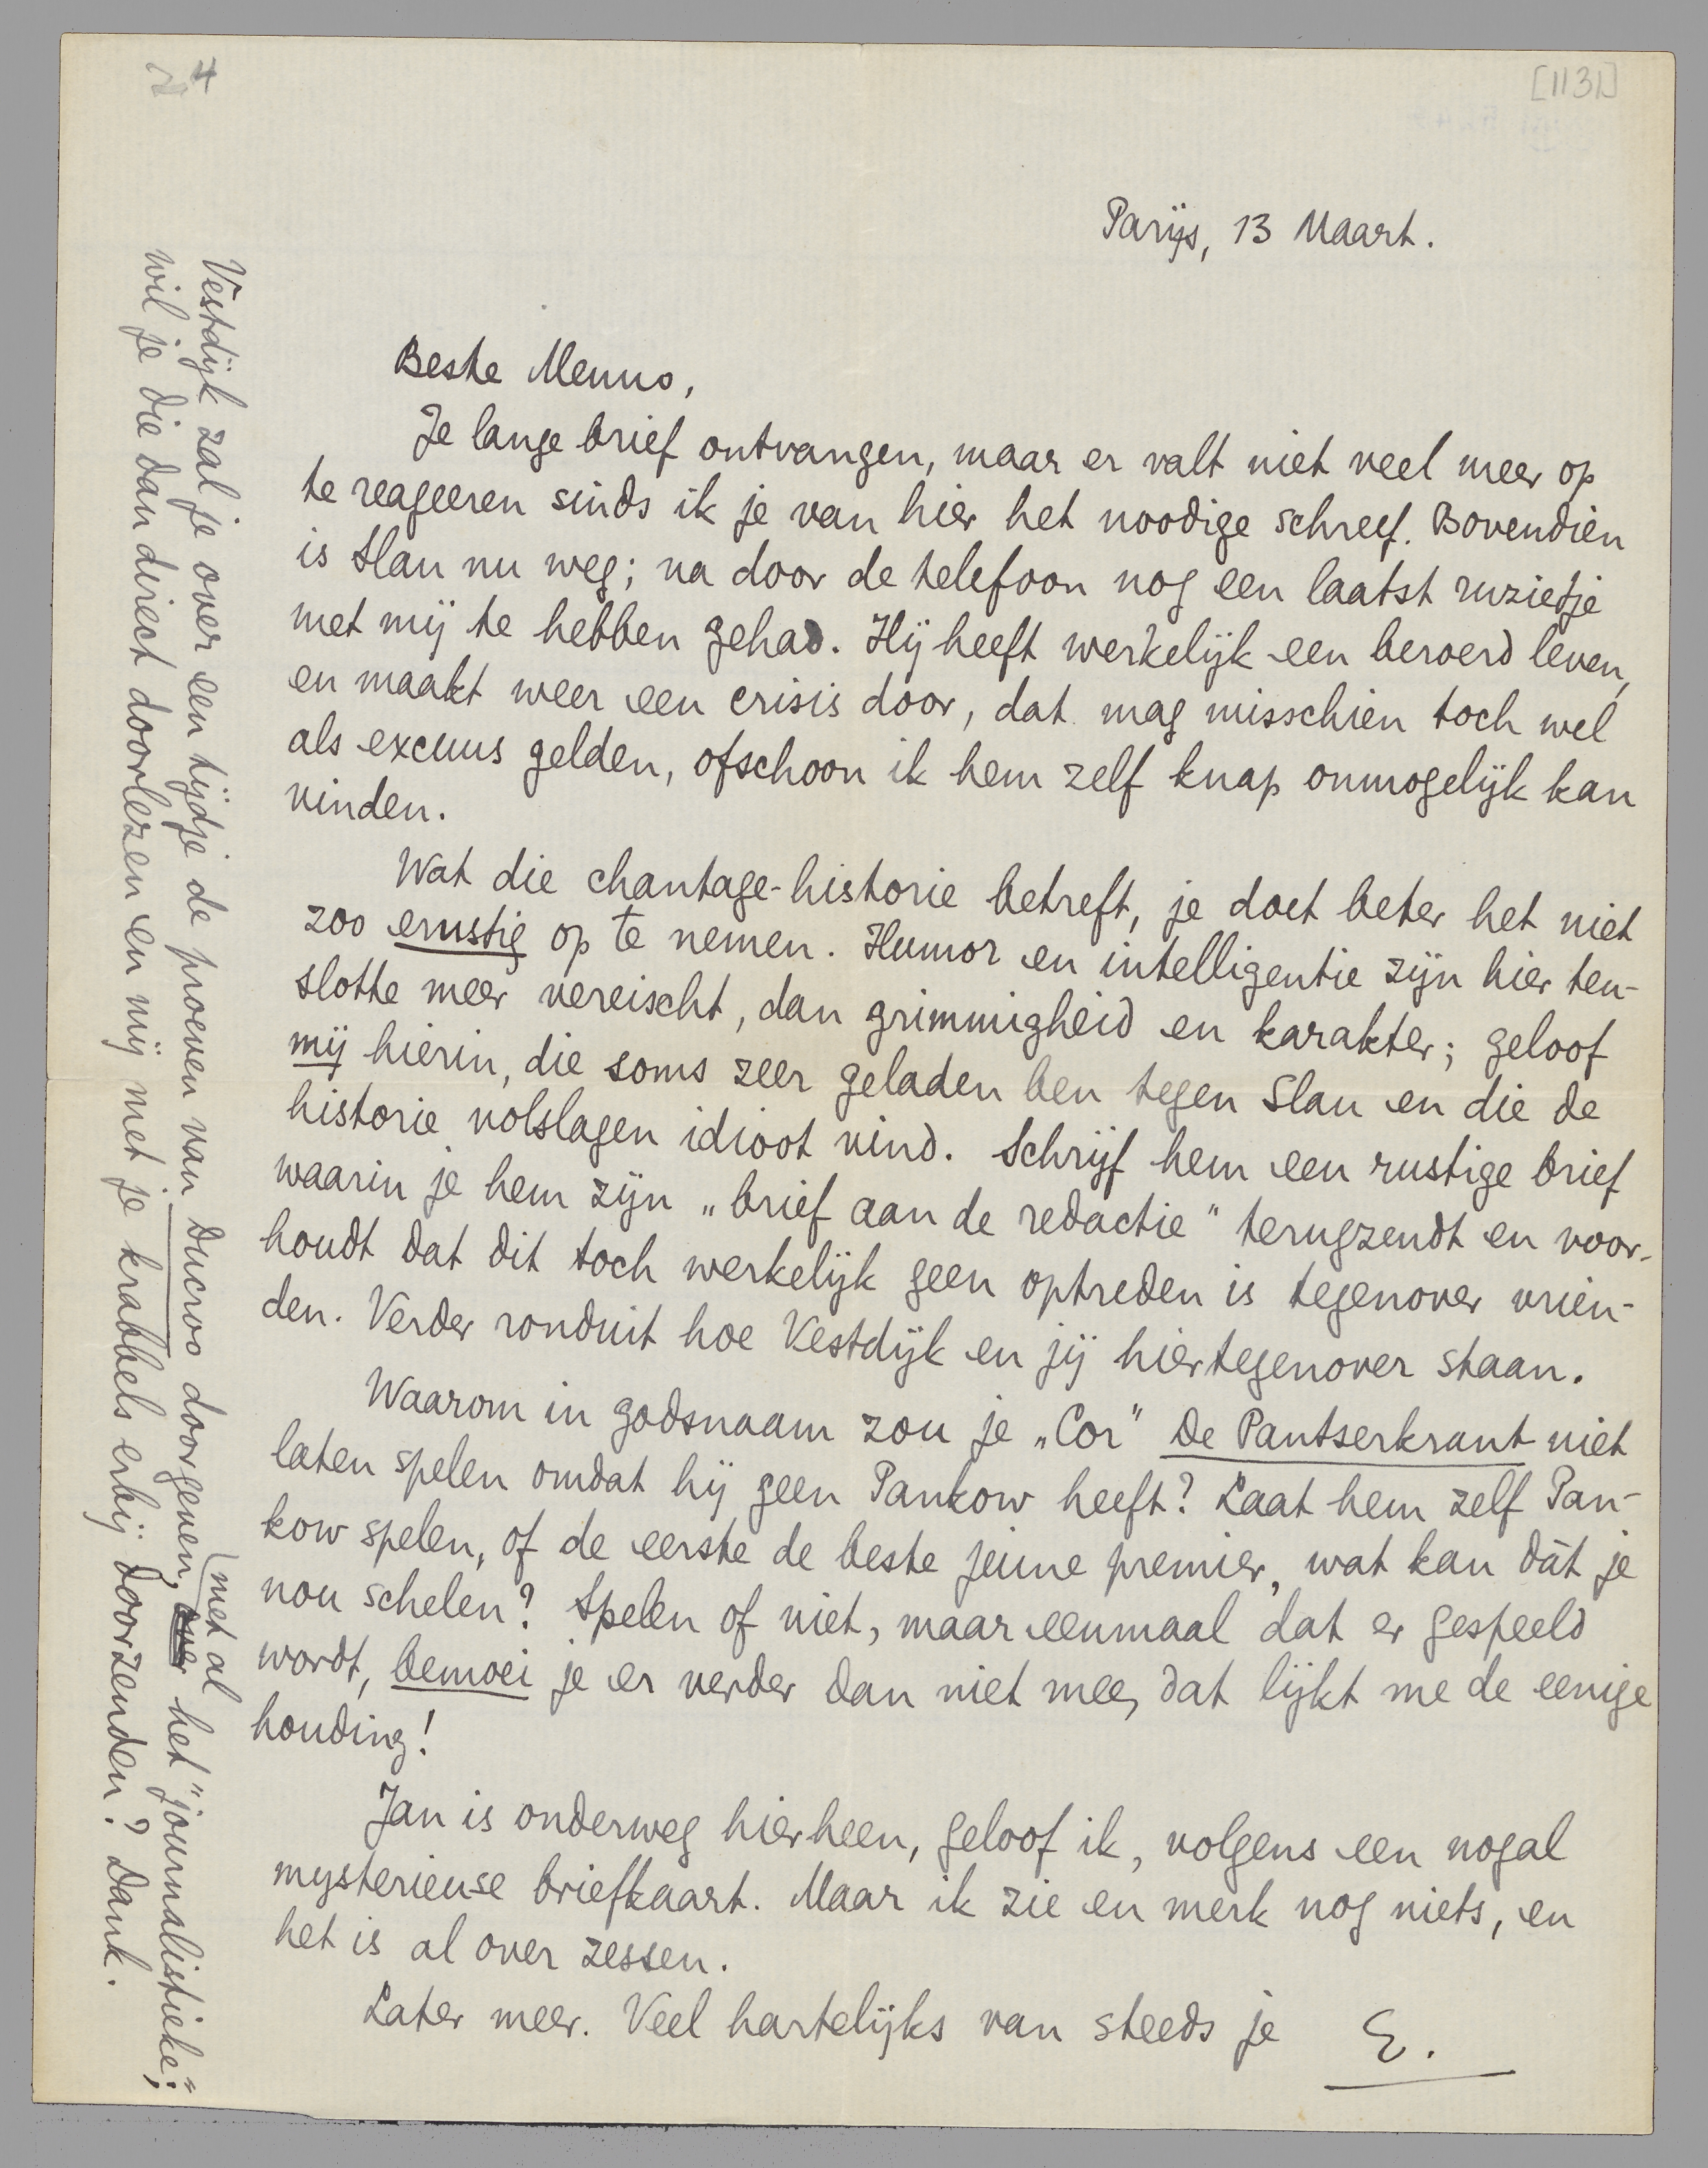 4
[1131]
Parijs, 13 Maart.
Beste Menno,
Je lange brief ontvangen, maar er valt niet veel meer op
te reageeren sinds ik je van hier het noodige schreef. Bovendien
is Slau nu weg; na door de telefoon nog een laatst ruzietje
met mij te hebben gehad. Hij heeft werkelijk een beroerd leven,
en maakt weer een crisis door, dat mag misschien toch wel
als excuus gelden, ofschoon ik hem zelf knap onmogelijk kan
vinden.
Wat die chantage-historie betreft, je doet beter het niet
zoo ernstig op te nemen. Humor en intelligentie zijn hier ten-
slotte meer vereischt, dan grimmigheid en karakter; geloof
mij hierin, die soms zeer geladen ben tegen Slau en die de
historie volslagen idioot vind. Schrijf hem een rustige brief
waarin je hem zijn „brief aan de redactie" terugzendt en voor-
houdt dat dit toch werkelijk geen optreden is tegenover vrien-
den. Verder ronduit hoe Vestdijk en jij hiertegenover staan.
Waarom in godsnaam zou je „Cor" De Pantserkrant niet
laten spelen omdat hij geen Pankow heeft? Laat hem zelf Pan-
kow spelen, of de eerste de beste jeune premier, wat kan dàt je
nou schelen? Spelen of niet, maar eenmaal dat er gespeeld
wordt, bemoei je er verder dan niet mee, dat lijkt me de eenige
houding!
Jan is onderweg hierheen, geloof ik, volgens een nogal
mysterieuse briefkaart. Maar ik zie en merk nog niets, en
het is al over zessen.
Later meer. Veel hartelijks van steeds je E.
Vestdijk zal je over een tijdje de proeven van Ducroo doorgeven, met al het "journalistieke";
wil je die dan direct doorlezen en mij met je krabbels erbij doorzenden? Dank.